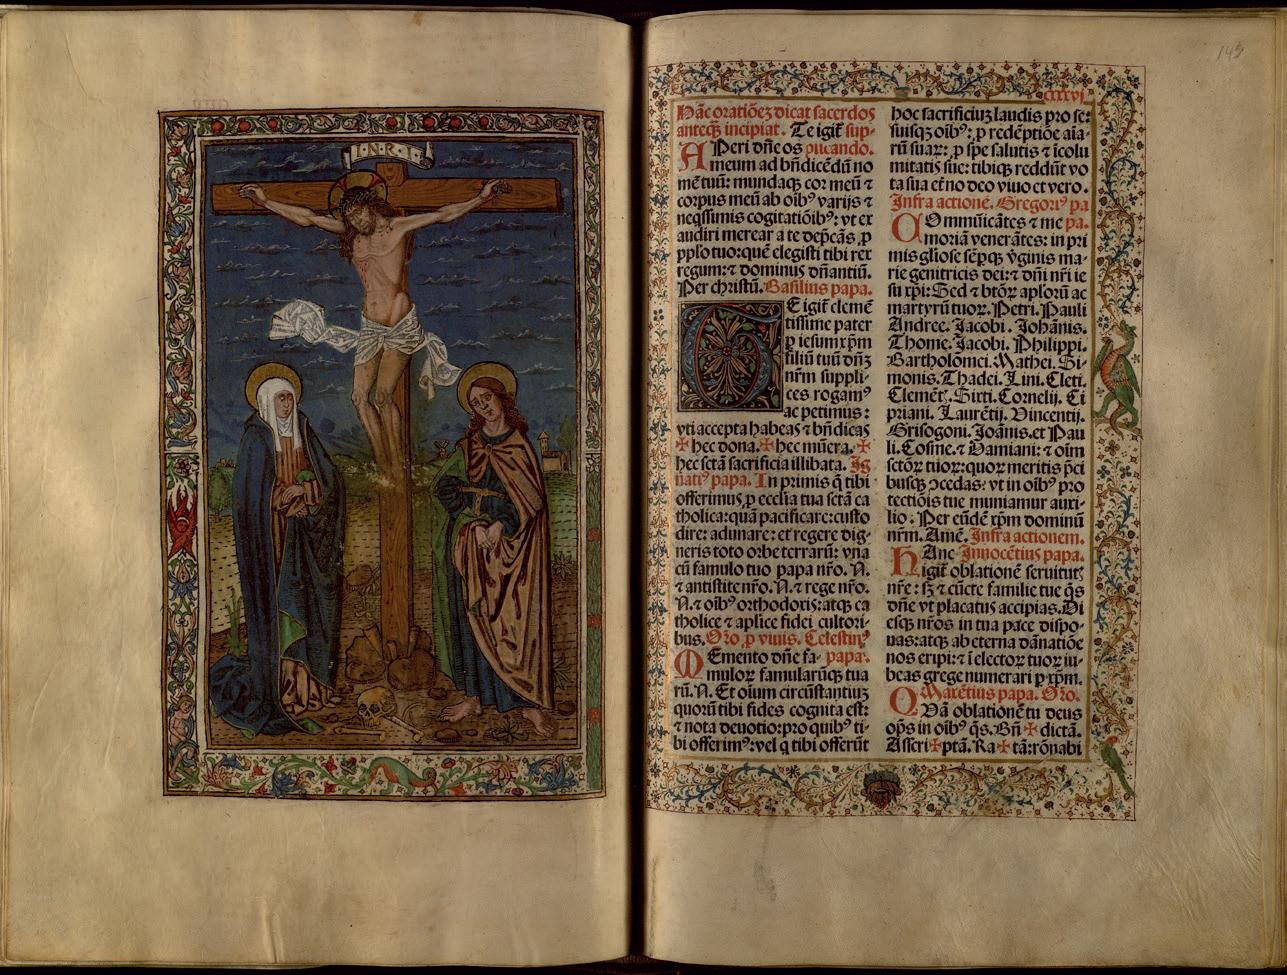 I·N·R·I
145
cxxxvj
Hãc orationẽz dicat sacerdos
anteqȝ incipiat. Te igit̃ sup-
APeri dñe os plicando.
meum ad bñdicẽdũ no
mẽ tuũ: mundaqȝ cor meũ ⁊
corpus meũ ab oibꝰ varijs ⁊
neq̃ssimis cogitatõibꝰ: vt ex
audiri merear a te dep̃cãs ꝓ
pplo tuo: quẽ elegisti tibi rex
regum: ⁊ dominus dñantiũ.
Per christũ. Gasilius papa.
TE igit̃ clemẽ
tissime pater
ꝑ iesum xp̃m
filiũ tuũ dñȝ
nr̃m suppli-
ces rogamꝰ
ac petimus:
vti accepta habeas ⁊ bñdicas
✠hec dona.✠hec mũera.✠
hec sctã sacrificia illibata. Ig
natiꝰ papa. In primis q̃ tibi
offerimus ꝓ ecclia tua sctã ca
tholica: quã pacificare: custo
dire: adunare: et regere dig-
neris toto orbe terrarũ: vna
cũ famulo tuo papa nr̃o. N.
⁊ antistite nr̃o. N. ⁊ rege nr̃o.
N. ⁊ oibꝰ orthodoxis: atqȝ ca
tholice ⁊ aplice fidei cultori-
bus. Oro ꝓ viuis. Celestinꝰ
MEmento dñe fa- papa.
muloꝝ famularũqȝ tua
rũ. N. Et oium circũstantiuȝ
quorũ tibi fides cognita est:
⁊ nota deuotio: pro quibꝰ ti-
bi offerimꝰ: vel q̃ tibi offerũt
hoc sacrificiuȝ laudis pro se:
suisqȝ oibꝰ: ꝓ redẽptiõe aĩa-
rũ suaꝝ: ꝓ spe salutis ⁊ ĩcolu
mitatis sue: tibiqȝ reddũt vo
ta sua et̃no deo viuo et vero.
Infra actionẽ. Gregoriꝰ pa
COmmũicãtes ⁊ me pa.
moriã venerãtes: in pri
mis gliose semp̃qȝ v̓ginis ma-
rie genitricis dei: ⁊ dñi nr̃i ie
su xp̃i: Sed ⁊ btõꝝ aploꝝ ac
martyrũ tuoꝝ. Petri. Pauli
Andree. Jacobi. Johãnis.
Thome. Jacobi. Philippi.
Bartholõmei. Mathei. Si-
monis. Thadei. Lini. Cleti.
Clemẽt. Sixti. Cornelij. Ci
priani. Laurẽtij. Vincentij.
Grisogoni. Joãnis. et Pau
li. Cosme. ⁊ Damiani: ⁊ oim̃
sctõꝝ tuoꝝ: quoꝝ meritis p̃ci
busqȝ ɔcedas: vt in oibꝰ pro
tectiõis tue muniamur auxi-
lio. Per eũdẽ xp̃m dominũ
nr̃m. Amẽ. Infra actionem.
HAnc Innocẽtius papa.
igit̃ oblationẽ seruitutȝ
nr̃e: sȝ ⁊ cũcte familie tue q̃s
dñe vt placatus accipias. Di
esqȝ nr̃os in tua pace dispo-
nas: atqȝ ab eterna dãnatiõe
nos eripi: ⁊ ĩ electoꝝ tuoꝝ iu-
beas grege numerari ꝑ xp̃m.
QMaxẽtius papa. Oro.
Vã oblationẽ tu deus
op̃s in oibꝰ q̃s. Bñ✠dictã.
Ascri✠ptã. Ra✠tã: rõnabi